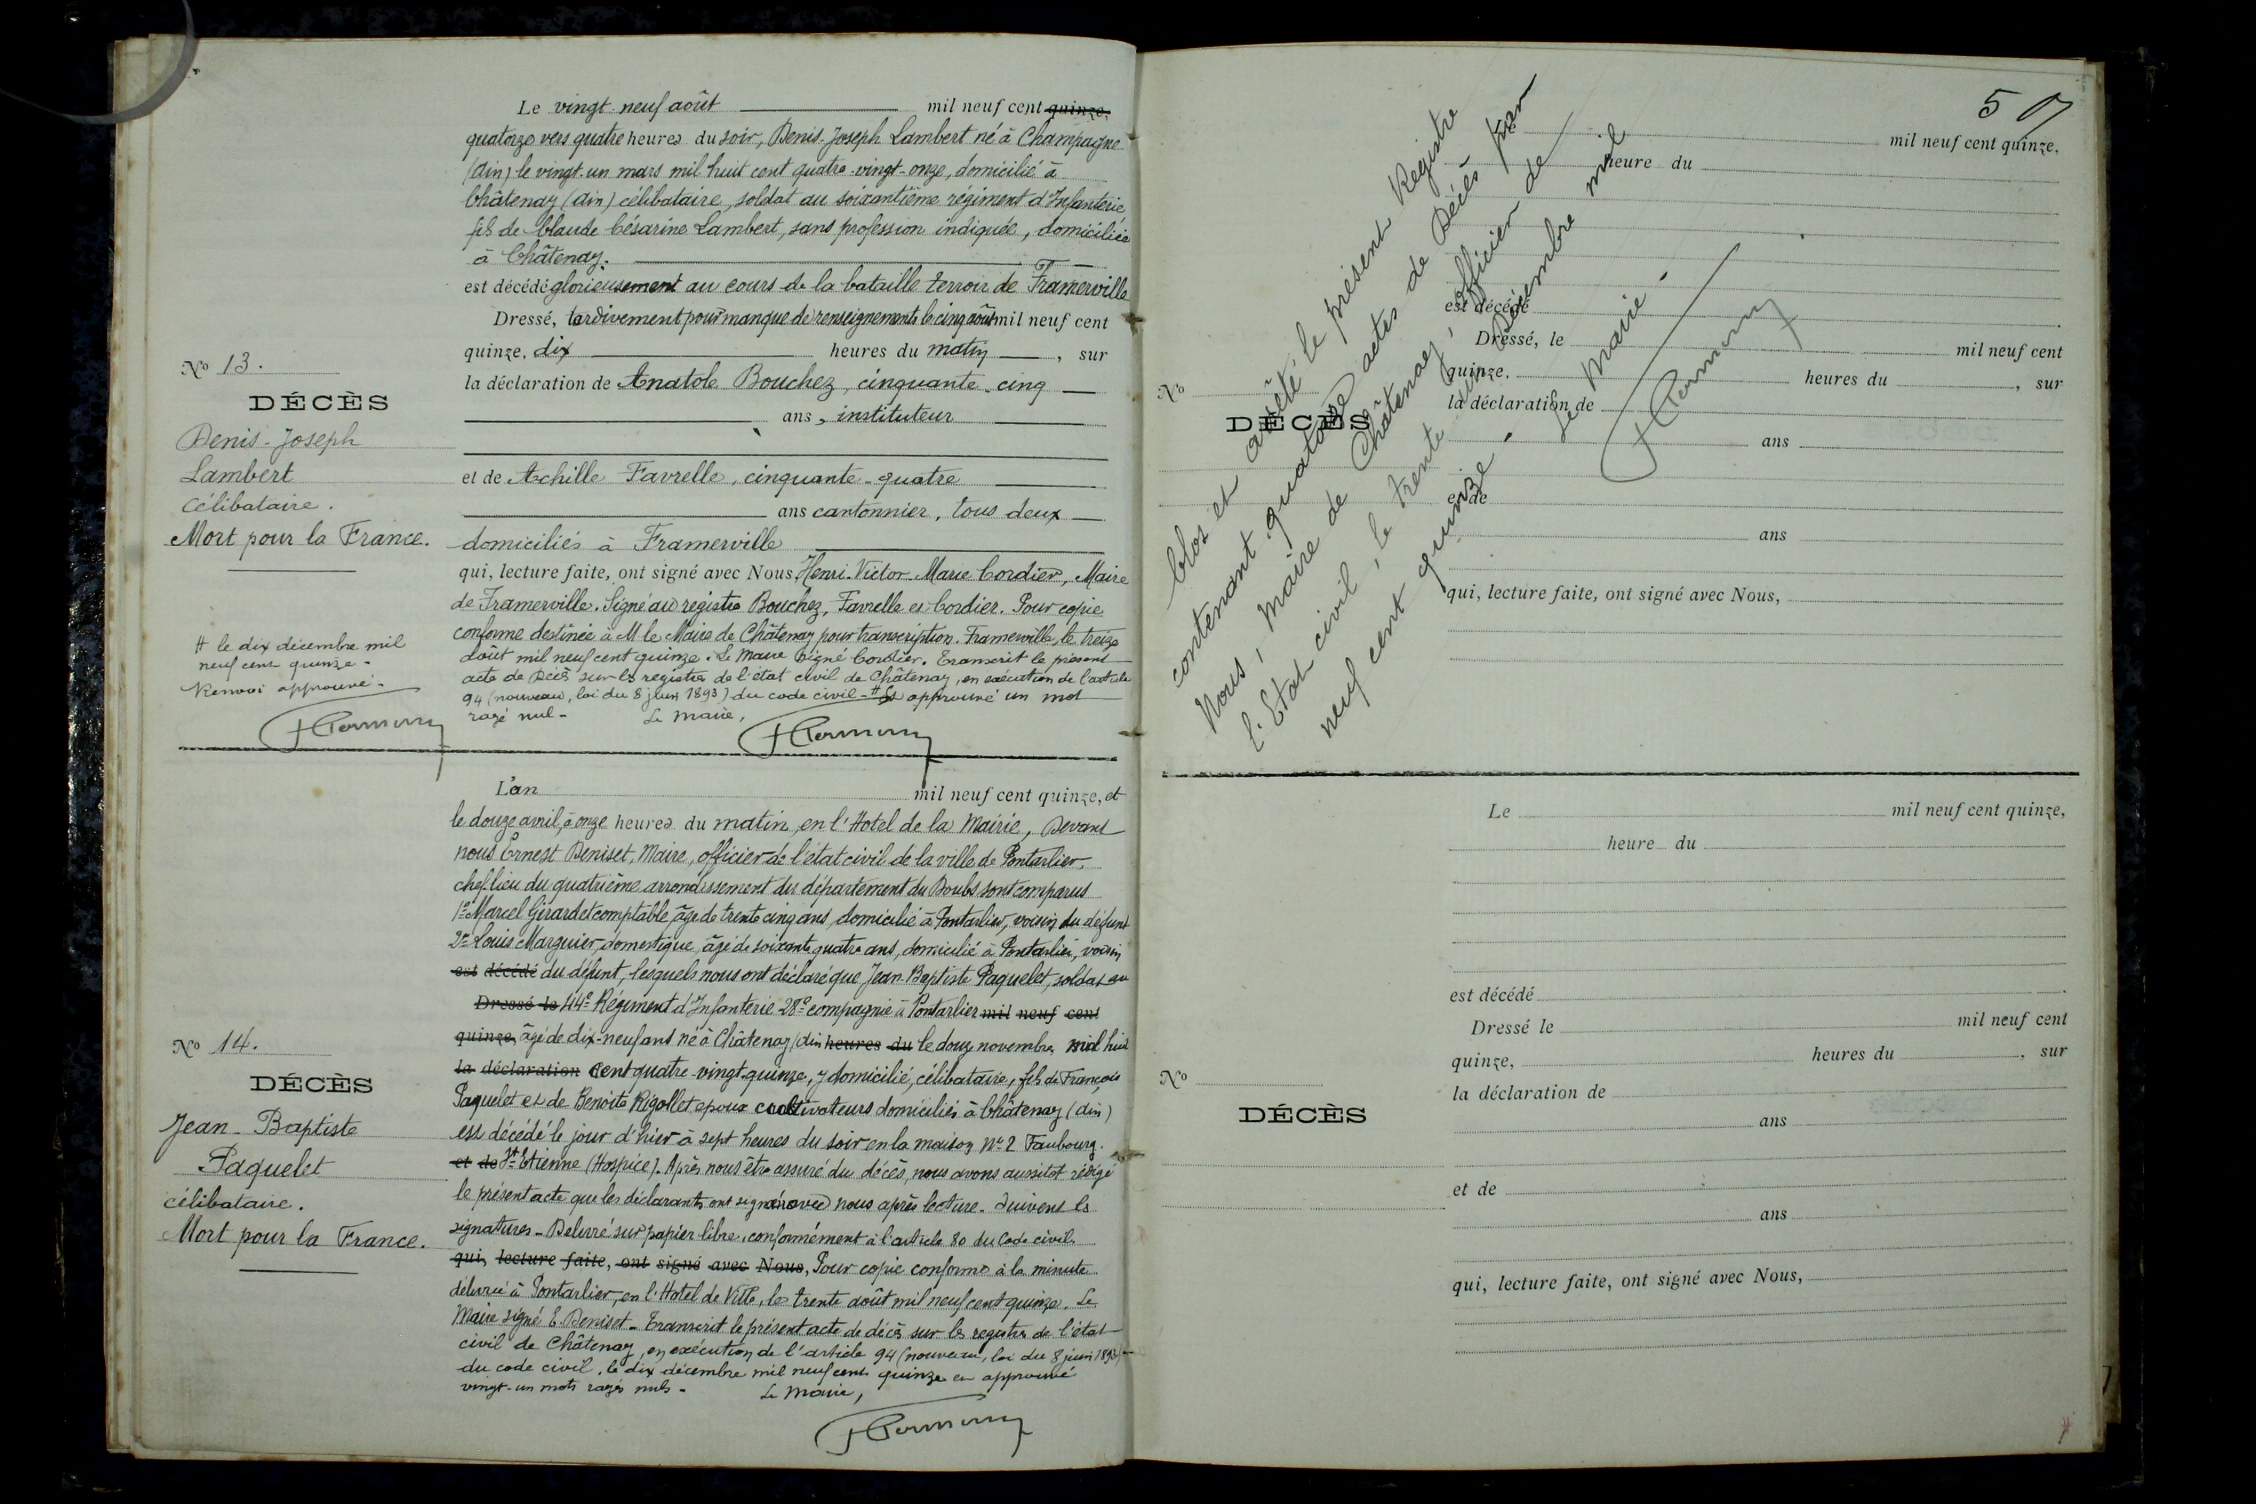 Le vingt-neuf août mil neuf cent quinze,
quatorze vers quatre heures du soir, Denis-Joseph Lambert né à Champagne
(Ain) le vingt-un mars mil huit cent quatre-vingt-onze, domicilié à
Châtenay (Ain) célibataire, soldat au soixantième régiment d'Infanterie,
fils de Claude Césarine Lambert, sans profession indiquée, domiciliée
à Châtenay.
est décédé glorieusement au cours de la bataille terroir de Framerville
Dressé, tardivement pour manque de renseignements le cinq août mil neuf cent
quinze, dix heures du matin, sur
la déclaration de Anatole Bouchez, cinquante-cinq
ans, instituteur
et de Achille Favrelle, cinquante-quatre
ans cantonnier, tous deux
domiciliés à Framerville
qui, lecture faite, ont signé avec Nous, Henri-Victor-Marie Cordier, Maire
de Framerville. Signé au registre Bouchez, Favrelle et Cordier. Pour copie
conforme destinée à M le Maire de Châtenay pour transcription. Framerville, le treize
août mil neuf cent quinze. Le Maire signé Cordier. Transcrit le présent
acte de Décès sur les registres de l'état civil de Châtenay, en exécution de l'article
94 (nouveau, loi du 8 juin 1893) du code civil - # Et approuvé un mot
rayé nul - Le Maire,
No 13.
DÉCÈS
Denis-Joseph
Lambert
Célibataire.
Mort pour la France.
# le dix décembre mil
neuf cent quinze -
Renvoi approuvé -
L'an mil neuf cent quinze, et
le douze avril, à onze heures du matin, en l'Hotel de la Mairie, Devant
nous Ernest Deniset, Maire, officier de l'état civil de la ville de Pontarlier,
chef-lieu du quatrième arrondissement du département du Doubs sont comparus
1° Marcel Girardet comptable, âgé de trente cinq ans, domicilié à Pontarlier, voisin du défunt
2° Louis Marguier, domestique, âgé de soixante quatre ans, domicilié à Pontarlier, voisin
est décédé du défunt, lesquels nous ont déclaré que Jean-Baptiste Paquelet, soldat au
Dressé le 44e Régiment d'Infanterie 28e compagnie à Pontarlier mil neuf cent
quinze, âgé de dix-neuf ans né à Châtenay (Ain heures du le douze novembre mil huit
la déclaration cent quatre-vingt-quinze, y domicilié, célibataire, fils de François
Paquelet et de Benoite Rigollet epoux cultivateurs domiciliés à Châtenay (Ain)
est décédé le jour d'hier à sept heures du soir en la maison No 2 Faubourg
et de St Etienne (Hospice). Après nous être assuré du décès, nous avons aussitot rédigé
le présent acte que les déclarants ont signé avec nous après lecture. Suivent les
signatures - Délivré sur papier libre, conformément à l'article 80 du Code civil
qui, lecture faite, ont signé avec Nous, Pour copie conforme à la minute
délivrée à Pontarlier, en l'Hotel de Ville, le trente août mil neuf cent quinze. Le
Maire signé E. Deniset - Transcrit le présent acte de décès sur les registres de l'état
civil de Châtenay, en exécution de l'article 94 (nouveau, loi du 8 juin 1893)
du code civil, le dix décembre mil neuf cent quinze en approuvé
vingt-un mots rayés nuls - Le Maire,
No 14.
DÉCÈS
Jean-Baptiste
Paquelet
célibataire.
Mort pour la France.
Clos et arrêté le présent Registre
contenant quatorze actes de Décès par
Nous, Maire de Châtenay, officier de
l'Etat civil, le trente-un Décembre mil
neuf cent quinze.
Le Maire
50
mil neuf cent quinze,
heure du
est décédé
Dressé, le mil neuf cent
quinze, heures du , sur
la déclaration de
ans
et de
ans
qui, lecture faite, ont signé avec Nous,
No
DÉCÈS
Le mil neuf cent quinze,
heure du
est décédé
Dressé le mil neuf cent
quinze, heures du , sur
la déclaration de
ans
et de
ans
qui, lecture faite, ont signé avec Nous,
No
DÉCÈS